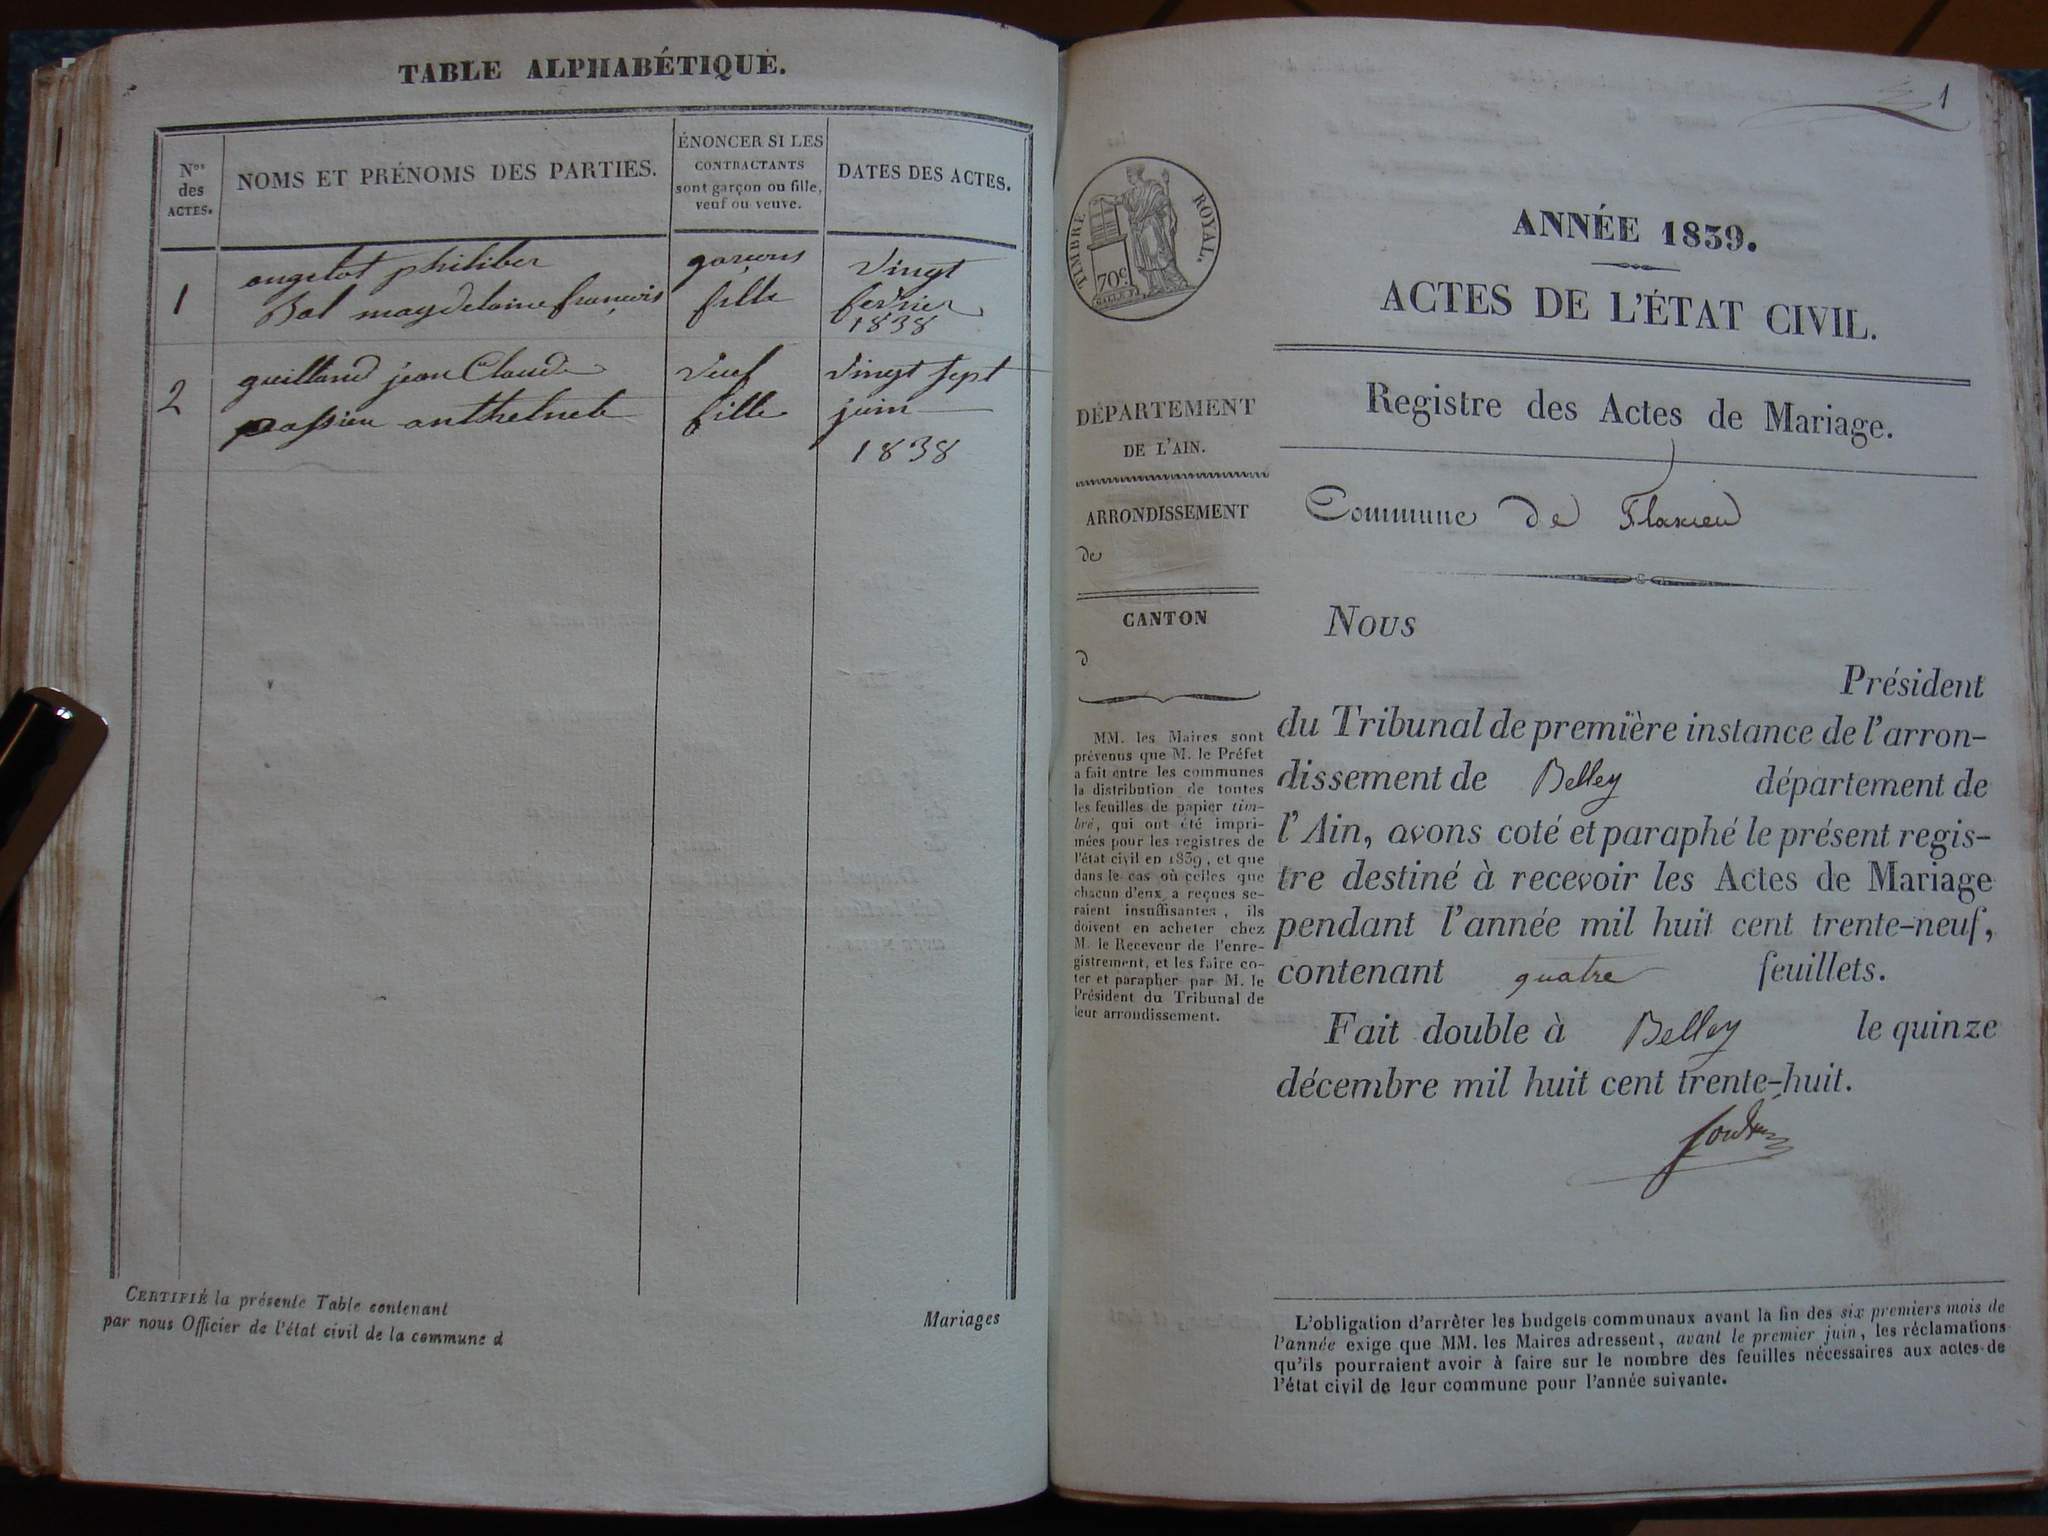 TABLE ALPHABÉTIQUE.
Nos
des
ACTES.
NOMS ET PRÉNOMS DES PARTIES.
ÉNONCER SI LES
CONTRACTANTS
sont garçon ou fille,
veuf ou veuve.
DATES DES ACTES.
1
angelot philiber
garçons
vingt
Bal magdelaine françois
fille
fevrier
1838
2
guilland jean Claude
veuf
vingt sept
passieu anthelmete
fille
juin
1838
CERTIFIÉ la présente Table contenant
Mariages
par nous Officier de l'état civil de la commune d
1
TIMBRE ROYAL.
70c
ANNÉE 1839.
ACTES DE L'ÉTAT CIVIL.
Registre des Actes de Mariage.
Commune de Flaxieu
DÉPARTEMENT
DE L'AIN.
ARRONDISSEMENT
de
CANTON
d
MM. les Maires sont
prévenus que M. le Préfet
a fait entre les communes
la distribution de toutes
les feuilles de papier tim-
bré, qui ont été impri-
mées pour les registres de
l'état civil en 1839, et que
dans le cas où celles que
chacun d'eux a reçues se-
raient insuffisantes, ils
doivent en acheter chez
M. le Receveur de l'enre-
gistrement, et les faire co-
ter et parapher par M. le
Président du Tribunal de
leur arrondissement.
Nous
Président
du Tribunal de première instance de l'arron-
dissement de Belley département de
l'Ain, avons coté et paraphé le présent regis-
tre destiné à recevoir les Actes de Mariage
pendant l'année mil huit cent trente-neuf,
contenant quatre feuillets.
Fait double à Belley le quinze
décembre mil huit cent trente-huit.
L'obligation d'arrêter les budgets communaux avant la fin des six premiers mois de
l'année exige que MM. les Maires adressent, avant le premier juin, les réclamations
qu'ils pourraient avoir à faire sur le nombre des feuilles nécessaires aux actes de
l'état civil de leur commune pour l'année suivante.